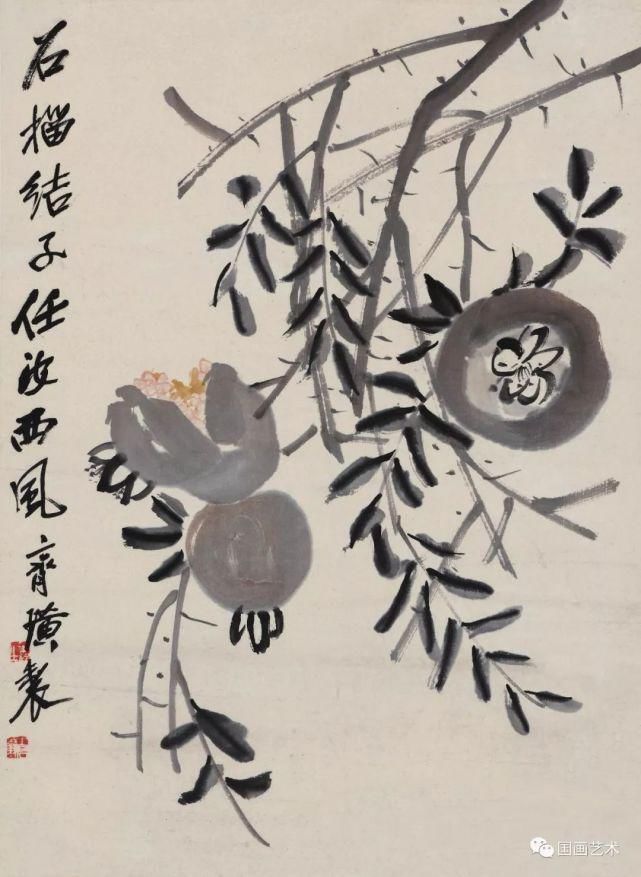 石榴结子任汝西风齐璜制
国画艺术